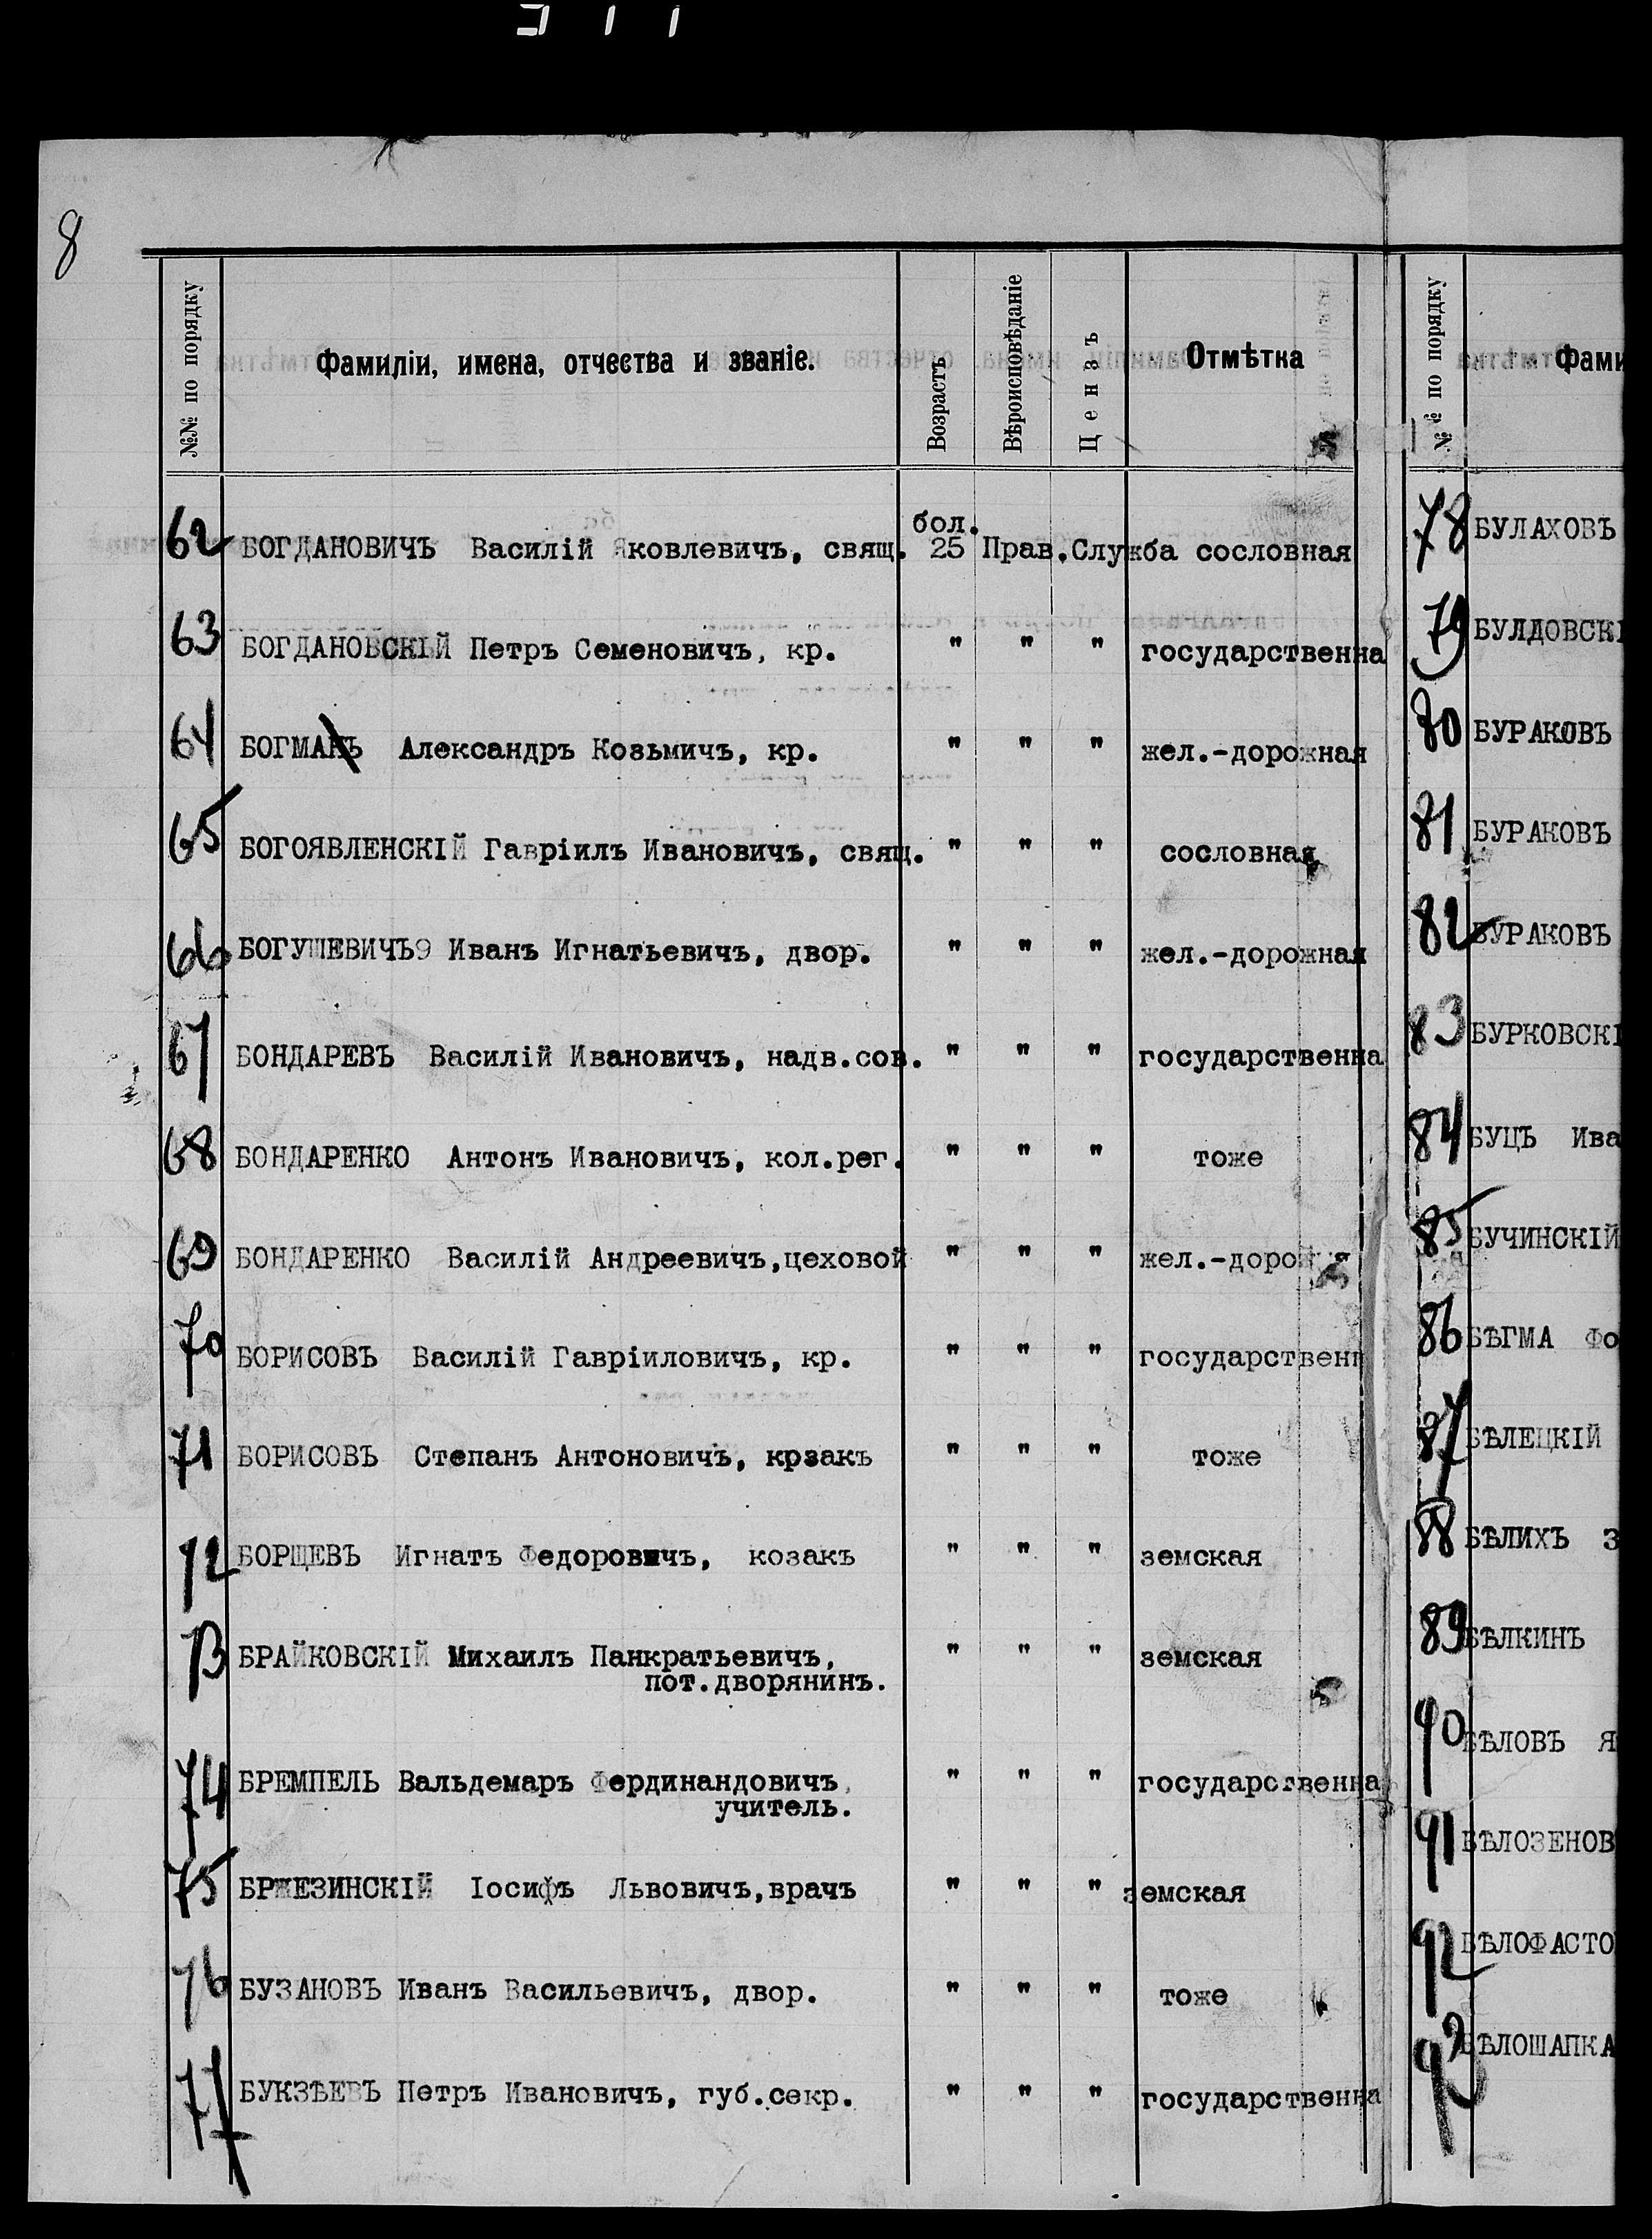 8
№№ по порядку Фамиліи, имена, отчества и званіе. Возрастъ Вѣроисповѣданіе Цензъ Отмѣтка
бол.
62 БОГДАНОВИЧЪ Василій Яковлевичъ, свящ. 25 Прав. Служба сословная
63 БОГДАНОВСКІЙ Петръ Семеновичъ, кр. " " " государственна
64 БОГМАНЪ Александръ Козьмичъ, кр. " " " жел.-дорожная
65 БОГОЯВЛЕНСКІЙ Гавріилъ Ивановичъ, свящ. " " " сословная
66 БОГУШЕВИЧЪ9 Иванъ Игнатьевичъ, двор. " " " жел.-дорожная
67 БОНДАРЕВЪ Василій Ивановичъ, надв.сов. " " " государственна
68 БОНДАРЕНКО Антонъ Ивановичъ, кол.рег. " " " тоже
69 БОНДАРЕНКО Василій Андреевичъ,цеховой " " "
70 БОРИСОВЪ Василій Гавріиловичъ, кр. " " " государственн
71 БОРИСОВЪ Степанъ Антоновичъ, крзакъ " " " тоже
72 БОРЩЕВЪ Игнатъ Федоровичъ, козакъ " " " земская
73 БРАЙКОВСКІЙ Михаилъ Панкратьевичъ, " " " земская
пот.дворянинъ.
74 БРЕМПЕЛЬ Вальдемаръ Фердинандовичъ, " " " государственна
учитель.
75 БРЖЕЗИНСКІЙ Іосифъ Львовичъ,врачъ " " " земская
76 БУЗАНОВЪ Иванъ Васильевичъ, двор. " " " тоже
77 БУКЗѢЕВЪ Петръ Ивановичъ, губ.секр. " " " государственна
№№ по порядку Фами
78 БУЛАХОВЪ
79 БУЛДОВСКІ
80 БУРАКОВЪ
81 БУРАКОВЪ
82 БУРАКОВЪ
83 БУРКОВСКІ
84 БУЦЪ Ива
85 БУЧИНСКІЙ
86 БѢГМА Фо
87 БѢЛЕЦКІЙ
88 БѢЛИХЪ З
89 БѢЛКИНЪ
90 БѢЛОВЪ Я
91 БѢЛОЗЕНОВ
92 БѢЛОФАСТО
93 БѢЛОШАПКА